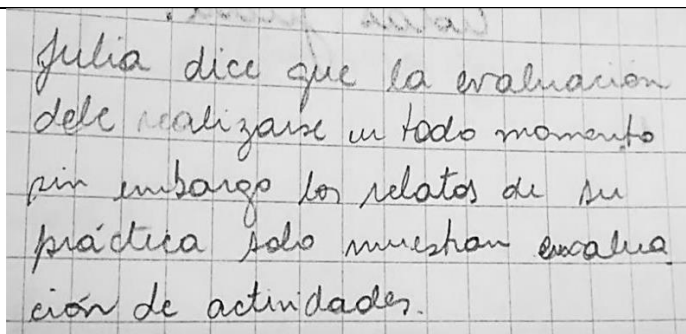 Julia dice que la evaluación
debe realizarse en todo momento
sin embargo los relatos de su
práctica solo muestran evalua
ción de actividades.